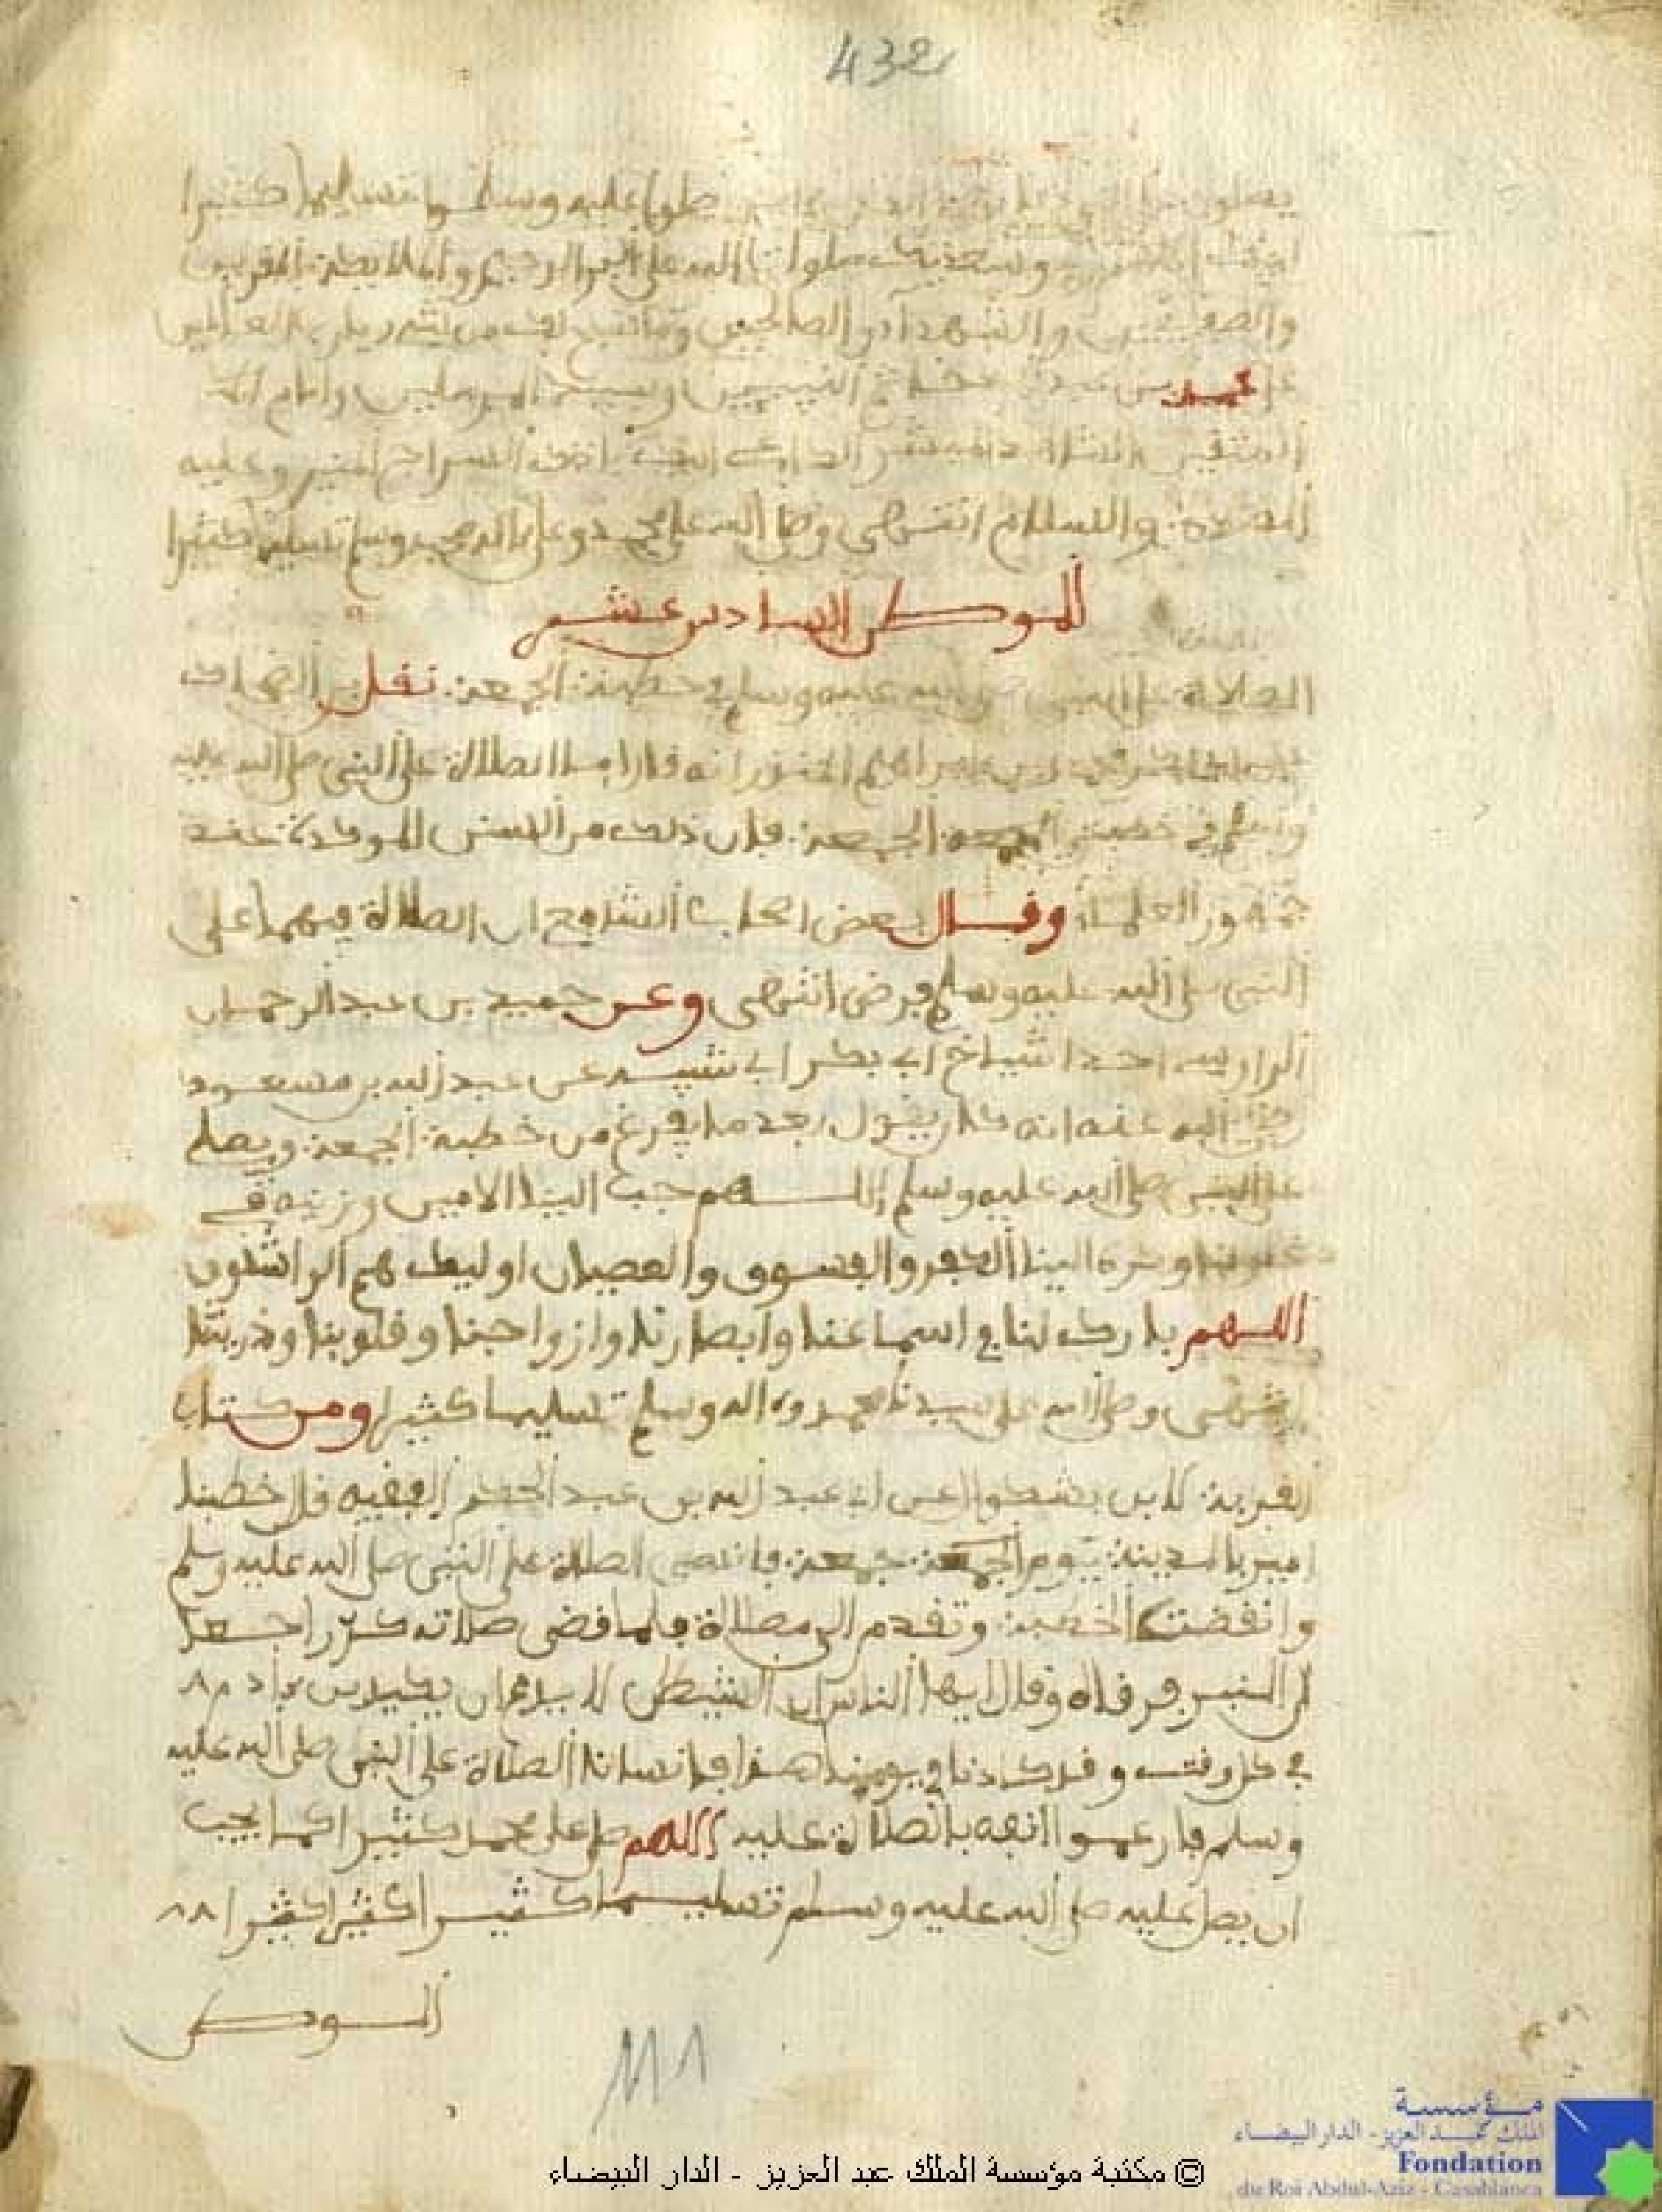 432
يصلون على النبي صلوا عليه وسلموا تسليما كثيرا
لبيك وسعديك صلوات الله على البر الرحيم والملائكة المقربين
والصديقين والشهداء والصالحين وما سبح لك من شيء يا رب العالمين
على محمد بن عبد خاتم النبيين وسيد المرسلين وامام
المتقين الشاهد المبشر الداعي اليك باذنك السراج المنير وعليه
الصلاة والسلام انتهى وصلى الله على محمد وعلى ءال محمد وسلم تسليما كثيرا
الموطن السادس عشر
الصلاة على النبي صلى الله عليه وسلم في خطبة الجمعة نقل
محمد بن ابراهيم انه قال اما الصلاة على النبي صلى الله عليه
وسلم في خطبة الجمعة الجمعة فان ذلك من السنن الموكدة عند
جمهور العلماء وقال بعض اصحاب الشافعي ان الصلاة فيهما على
النبي صلى الله عليه وسلم فرض انتهى وعن حميد بن عبد الرحمان
احد اشياخ ابي بكر ابي شيبه عن عبد الله بن مسعود
رضي الله عنه انه كان يقول بعد ما يفرغ من خطبة الجمعة ويصلي
على النبي صلى الله عليه وسلم اللهم حبب الينا الامين وزينه في
قلوبنا وكره الينا الكفر والفسوق والعصيان اوليك هم الراشدون
اللهم بارك لنا في اسماعنا وابصارنا وازواجنا وقلوبنا وذريتنا
انتهى وصلى الله على سيدنا محمد وءاله وسلم تسليما كثيرا ومن كتاب
القربة لابن بشكوال عن ابي عبد الله بن عبد الحكم الفقيه قال خطبنا
امير بالمدينة يوم الجمعة جمعة فانسي الصلاة على النبي صلى الله عليه وسلم
وانقضت الخطبة وتقدم الى مصلاه فلما قضى صلاته كر راجعا
الى المنبر فرقاه وقال ايها الناس ان الشيطان لا يدع ان يكيد بن ءادم
في كل وقت وقد كادنا في يومنا هذا فانسانا الصلاة على النبي صلى الله عليه
وسلم فارغموا انفه بالصلاة عليه اللهم صل على محمد كثيرا كما يجب
ان يصلى عليه صلى الله عليه وسلم تسليما كثيرا كثيرا كثيرا
الموطن
© مكتبة مؤسسة الملك عبد العزيز - الدار البيضاء
مؤسسة
الملك عبد العزيز - الدار البيضاء
Fondation
du Roi Abdul-Aziz - Casablanca